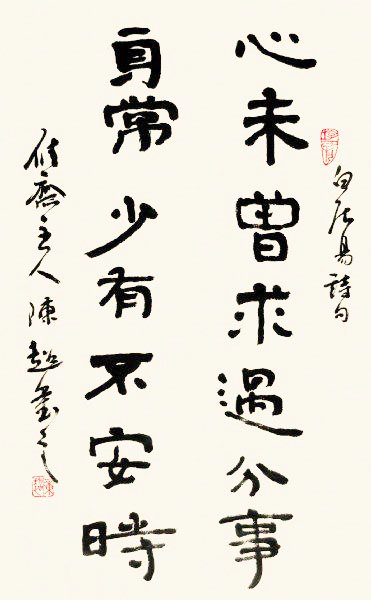 白居易詩句
心未曾求過分事
身常少有不安時
齋主人陳超